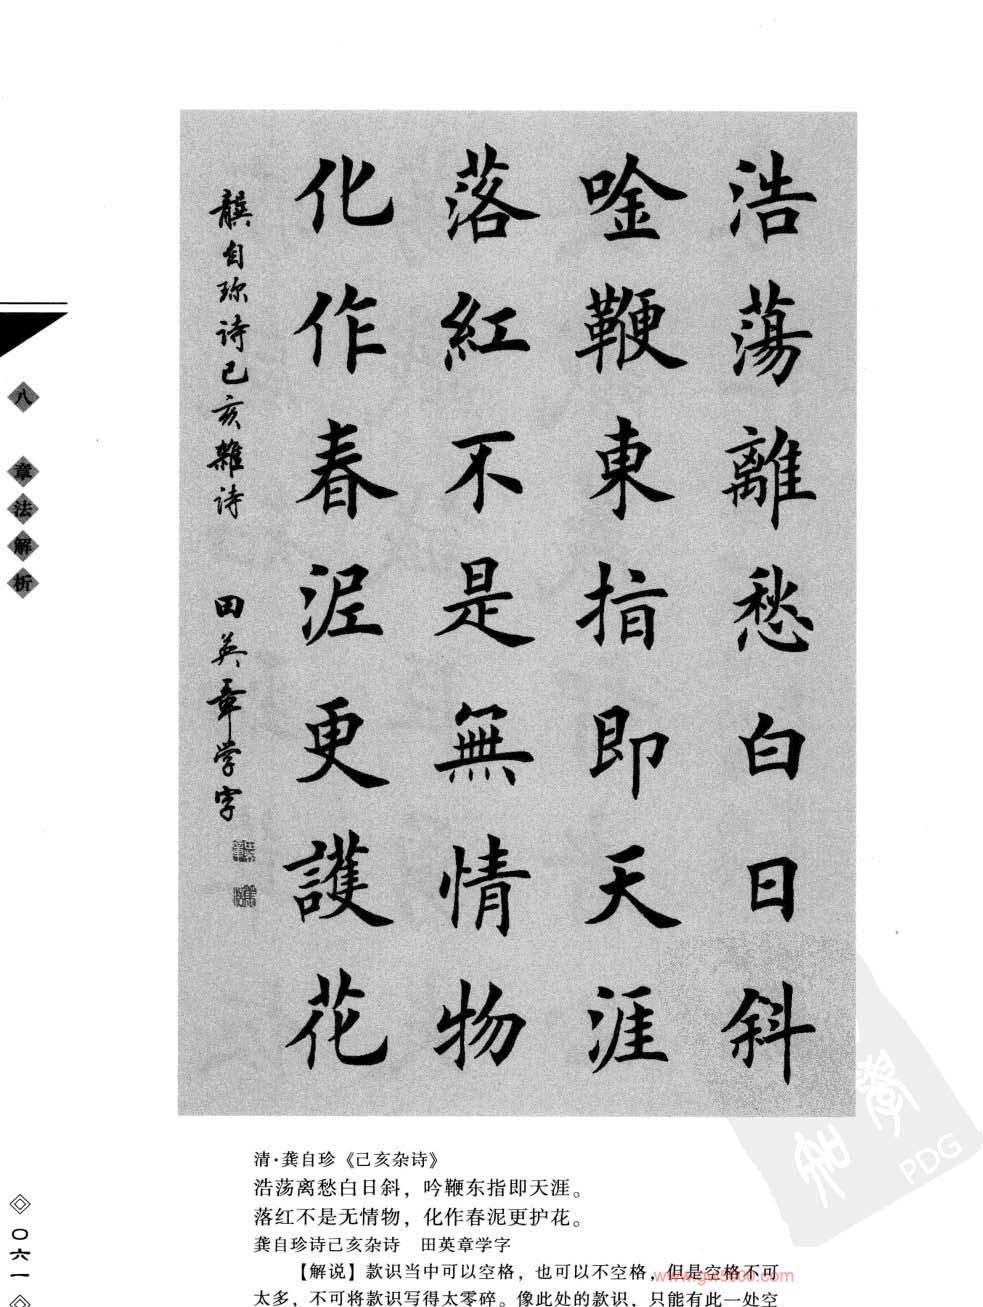 浩蕩離愁白日斜
唫鞭東指即天涯
落紅不是無情物
化作春泥更護花
龔自珍诗己亥雜诗 田英章学字
八 章法解析
清·龚自珍《己亥杂诗》
浩荡离愁白日斜，吟鞭东指即天涯。
落红不是无情物，化作春泥更护花。
龚自珍诗己亥杂诗 田英章学字
【解说】款识当中可以空格，也可以不空格，但是空格不可
太多，不可将款识写得太零碎。像此处的款识，只能有此一处空
〇六一
PDG